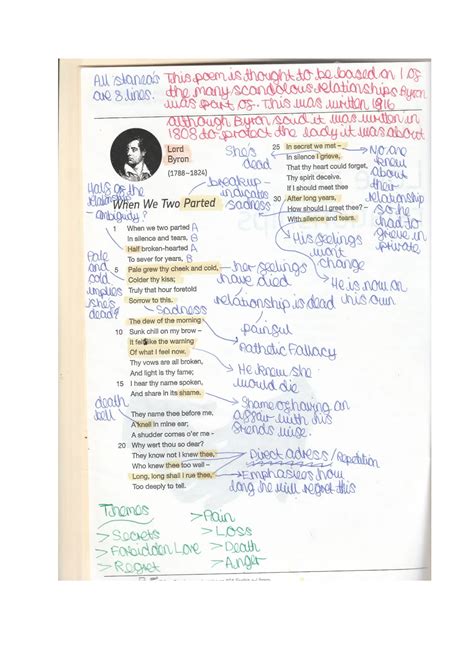 All stanzas
are 8 lines.
This poem is thought to be based on 1 of
the many scandolous relationships Byron
was part of. This was written 1916
although Byron said it was written in
1808 to protect the lady it was about
Lord
Byron
(1788–1824)
When We Two Parted
Half of the
ambiguity?
breakup -
indicates
sadness
1 When we two parted A
In silence and tears, B
Half broken-hearted A
To sever for years, B
5 Pale grew thy cheek and cold,
Colder thy kiss;
Truly that hour foretold
Sorrow to this.
The dew of the morning
10 Sunk chill on my brow –
It felt like the warning
Of what I feel now.
Thy vows are all broken,
And light is thy fame;
15 I hear thy name spoken,
And share in its shame.
They name thee before me,
A knell in mine ear;
A shudder comes o'er me -
20 Why wert thou so dear?
They know not I knew thee,
Who knew thee too well –
Long, long shall I rue thee,
Too deeply to tell.
25 In secret we met –
In silence I grieve,
That thy heart could forget,
Thy spirit deceive.
If I should meet thee
30 After long years,
How should I greet thee? –
With silence and tears.
She's
dead
No one
knew
about
their
relationship
so he
had to
grieve in
private
His feelings
wont
change
He is now on
his own
Pale
and
cold
implies
she's
dead?
her feelings
have died
relationship is dead
sadness
painful
Pathetic Fallacy
He knew she
would die
Shame of having an
affair with his
friends wife.
death
bell
Direct adress/Repetition
Emphasises how
long he will regret this
Themes
>Secrets
>Forbidden Love
>Regret
>Pain
>Loss
>Death
>Anger